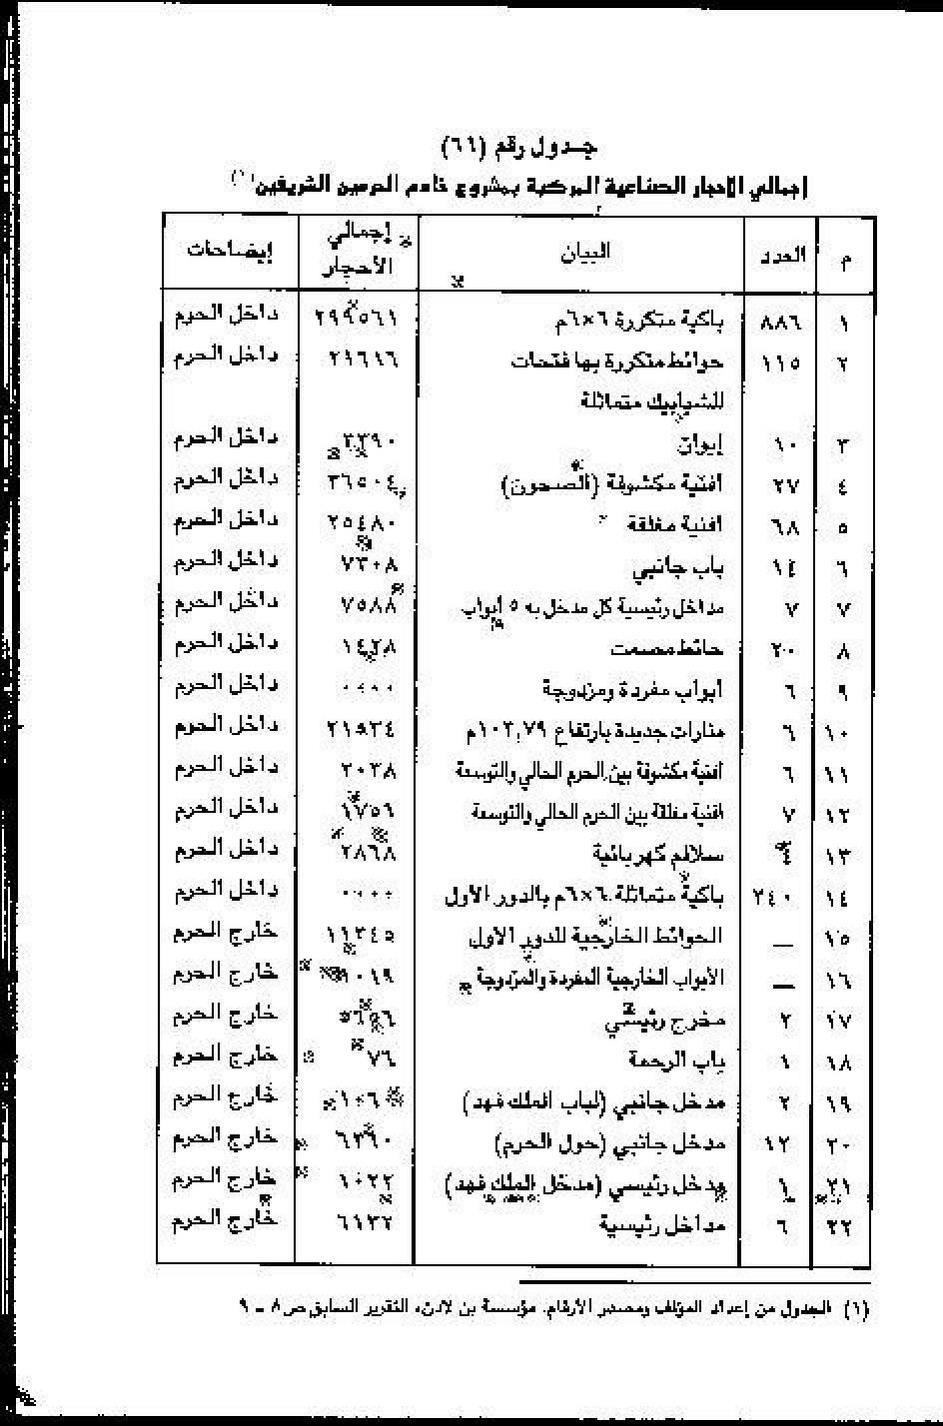 جدول رقم (٦٦)
إجمالي الأحجار الصناعية المركبة بمشروع خادم الحرمين الشريفين (١)
م العدد البيان إجمالي الأحجار إيضاحات
١ ٨٨٦ باكية متكررة ٦×٦م ٢٩٩٥٦١ داخل الحرم
٢ ١١٥ حوائط متكررة بها فتحات ٢١٦١٦ داخل الحرم
للشبابيك متماثلة
٣ ١٠ إيوان ٣٣٩٠ داخل الحرم
٤ ٢٧ أفنية مكشوفة (الصحون) ٣٦٥٠٤ داخل الحرم
٥ ٦٨ أفنية مغلقة ٢٥٤٨٠ داخل الحرم
٦ ١٤ باب جانبي ٧٣٠٨ داخل الحرم
٧ ٧ مداخل رئيسية كل مدخل به ٥ أبواب ٧٥٨٨ داخل الحرم
٨ ٢٠ حائط مصمت ١٤٢٨ داخل الحرم
٩ ٦ أبواب مفردة ومزدوجة ٠٠٠٠ داخل الحرم
١٠ ٦ منارات جديدة بارتفاع ١٠٣,٧٩م ٢١٥٣٤ داخل الحرم
١١ ٦ أفنية مكشوفة بين الحرم الحالي والتوسعة ٢٠٣٨ داخل الحرم
١٢ ٧ أفنية مغلقة بين الحرم الحالي والتوسعة ١٧٥٦ داخل الحرم
١٣ سلالم كهربائية ٢٨٦٨ داخل الحرم
١٤ ٢٤٠ باكية متماثلة ٦×٦م بالدور الأول ٠٠٠٠ داخل الحرم
١٥ — الحوائط الخارجية للدور الأول ١١٣٤٥ خارج الحرم
١٦ — الأبواب الخارجية المفردة والمزدوجة خارج الحرم
١٧ ٢ مخرج رئيسي ٥٦٥٦ خارج الحرم
١٨ ١ باب الرحمة ٧٦ خارج الحرم
١٩ ٢ مدخل جانبي (لباب الملك فهد) ١٠٦ خارج الحرم
٢٠ ١٢ مدخل جانبي (حول الحرم) ٦٣٩٠ خارج الحرم
٢١ ١ مدخل رئيسي (مدخل الملك فهد) ١٠٢٢ خارج الحرم
٢٢ ٦ مداخل رئيسية ٦١٣٢ خارج الحرم
(١) الجدول من إعداد المؤلف ومصدر الأرقام. مؤسسة بن لادن، التقرير السابق ص ٨ - ٩